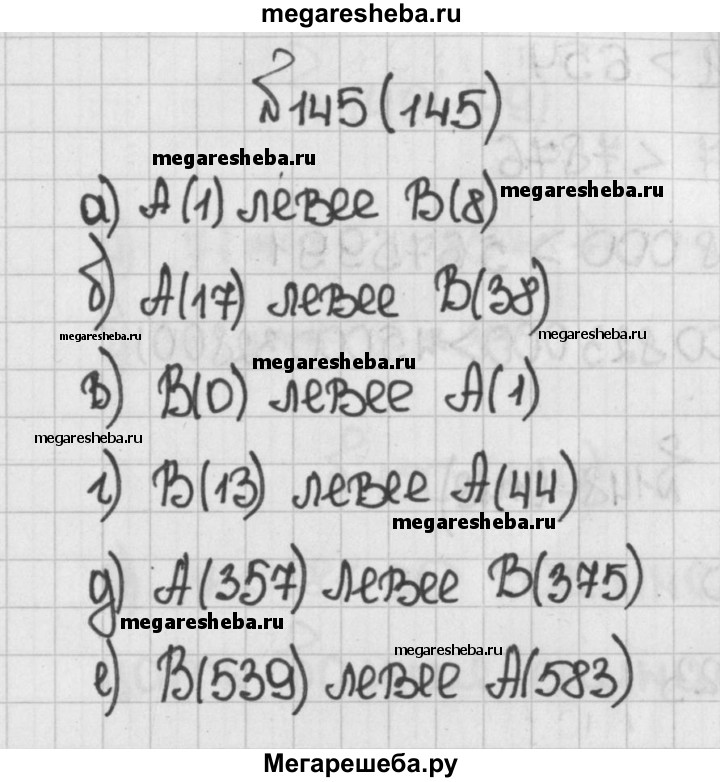 megaresheba.ru
№145(145)
megaresheba.ru
а) А(1) левее В(8) megaresheba.ru
б) А(17) левее В(38)
megaresheba.ru megaresheba.ru
megaresheba.ru
в) В(0) левее А(1)
megaresheba.ru
г) В(13) левее А(44)
megaresheba.ru
д) А(357) левее В(375)
megaresheba.ru
megaresheba.ru
е) В(539) левее А(583)
Мегарешеба.ру